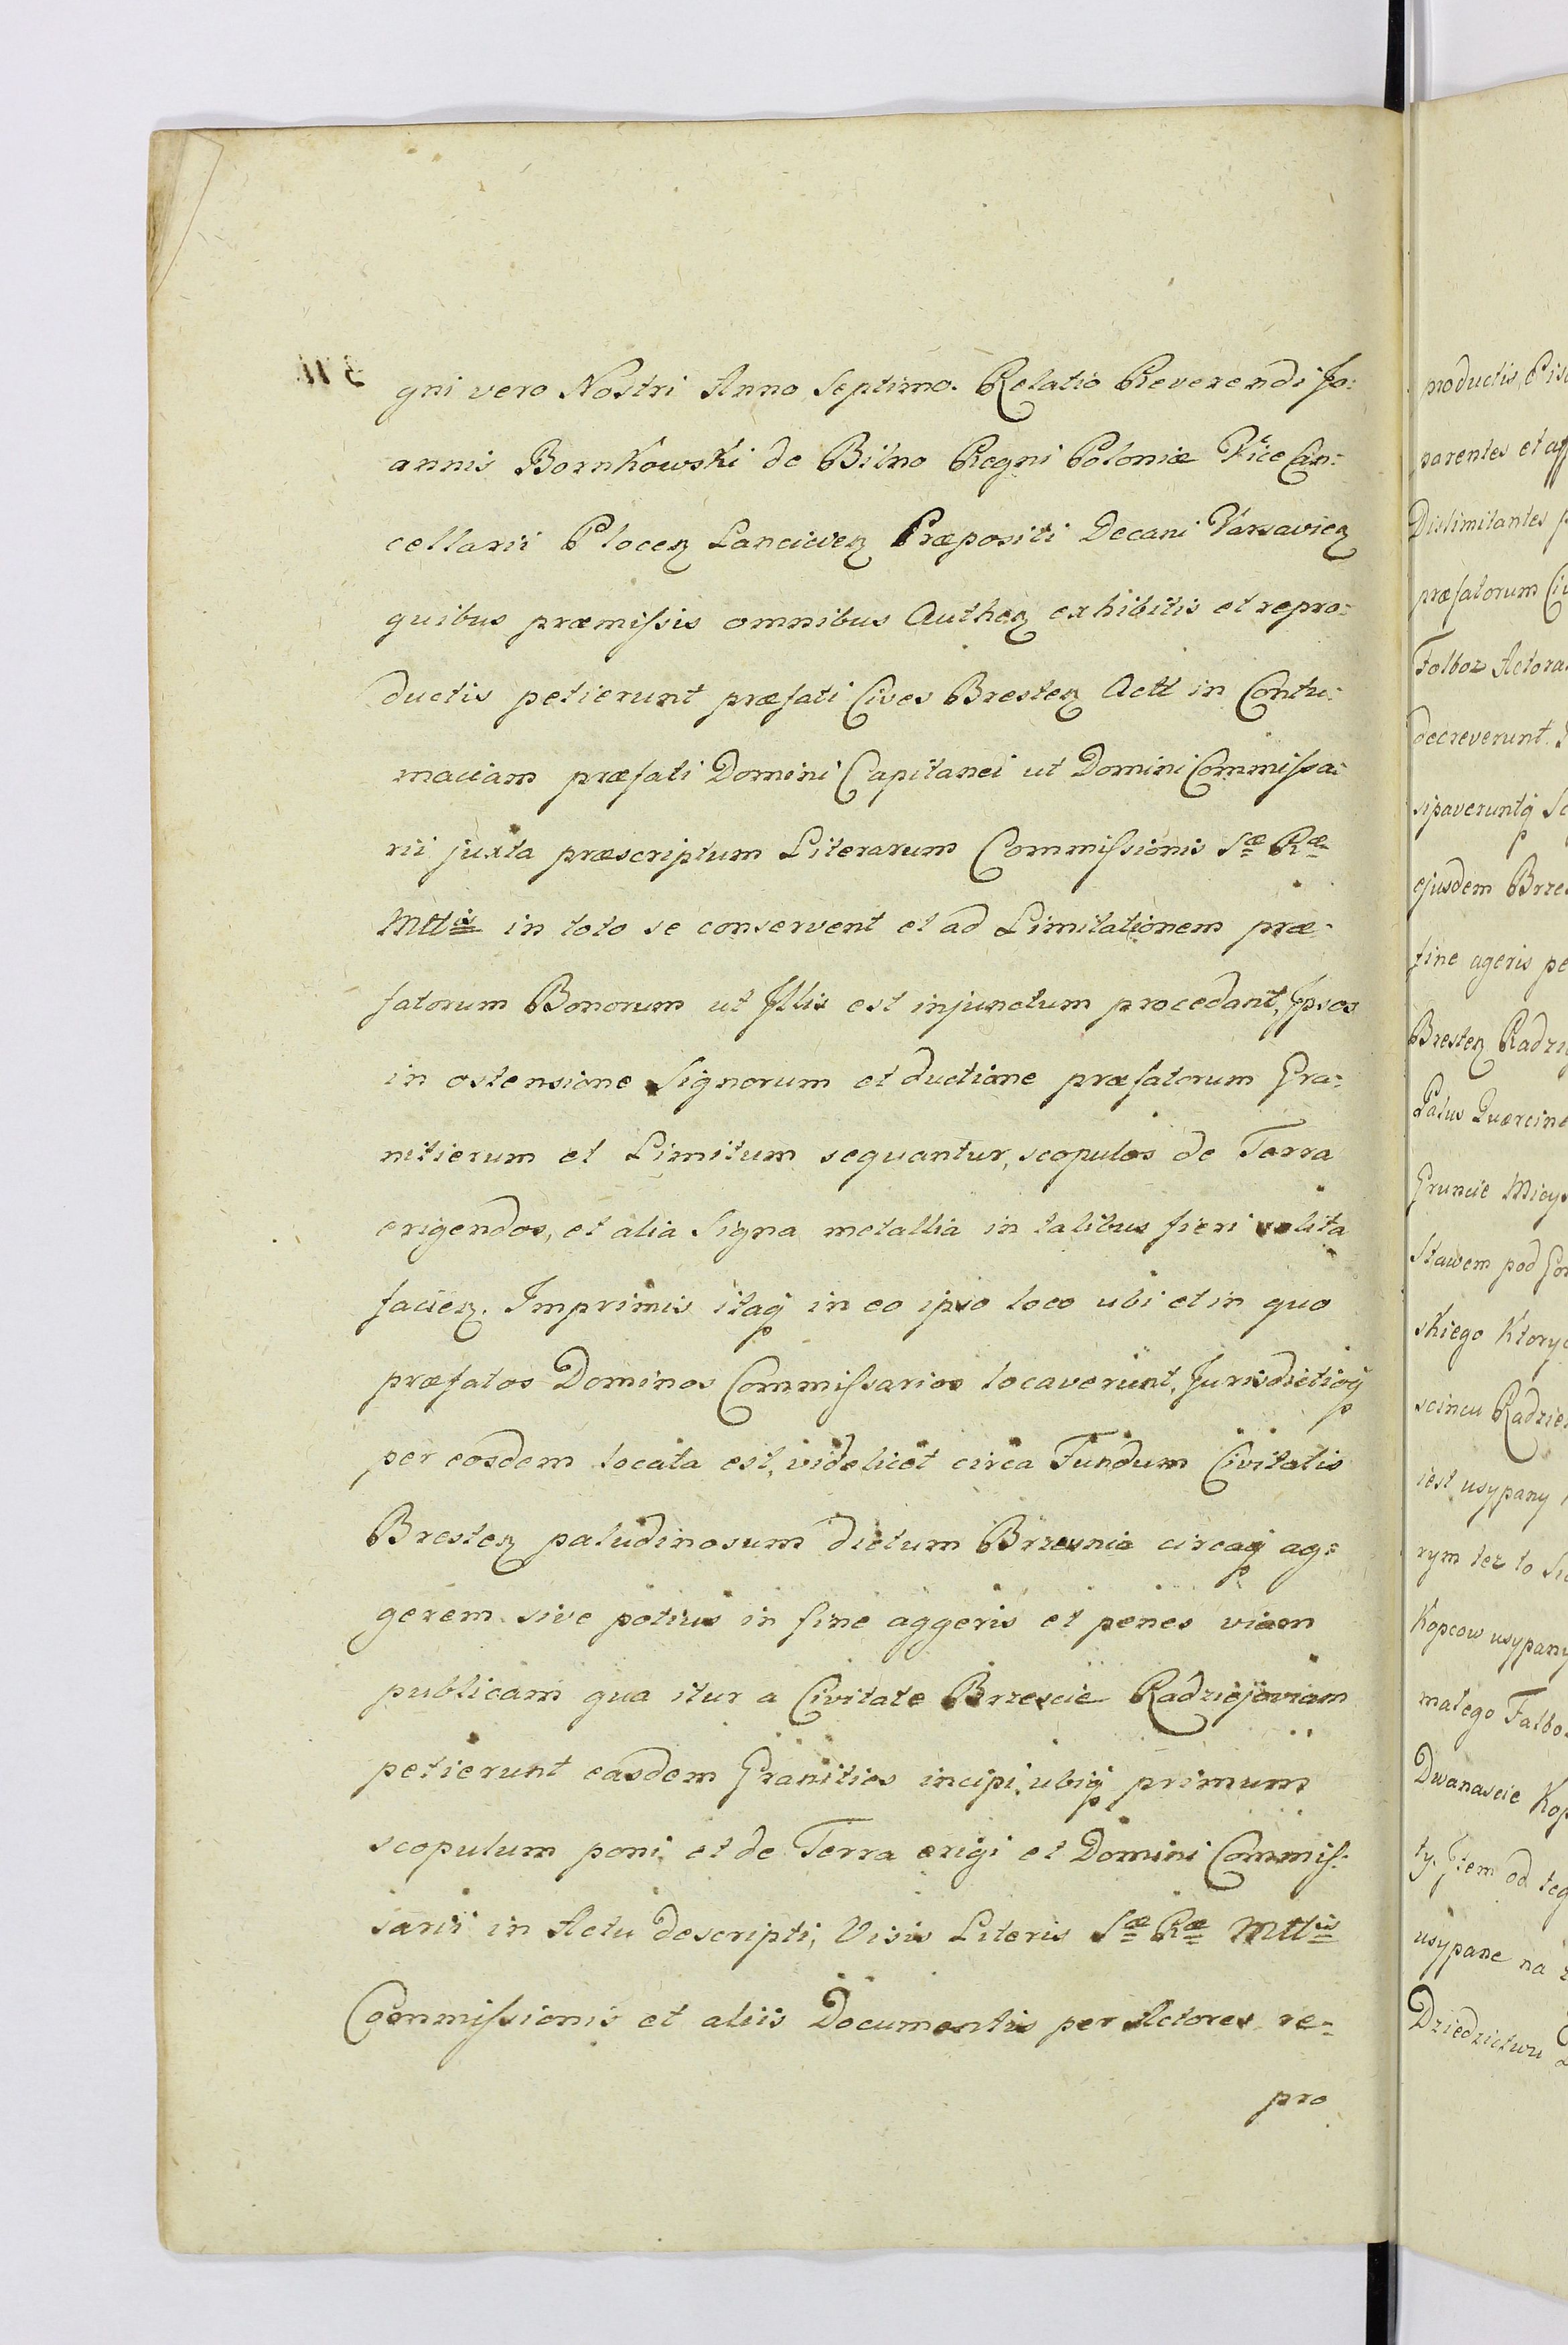 gni vero Nostri Anno Septimo. Relatio Reverendi Jo:
annis Bornkowski de Bilno Regni Poloniæ Vice Can:
cellarii Plocen Lancicien Præpositi Decani Varsavien
quibus præmissis omnibus Authen exhibitis et repro:
ductis petierunt præfati Cives Bresten Actt in Contu:
maciam præfati Domini Capitanei ut Domini Commissa:
rii juxta præscriptum Literarum Commissionis Sæ Ræ
Mttis in toto se conservent et ad Limitationem præ:
fatorum Bonorum ut Illis est injunctum procedant, Ipsos
in ostensione Signorum et ductione præfatorum Gra:
nitierum et Limitum sequantur, scopulos de Terra
erigendos, et alia Signa metallia in talibus fieri solita
facien. Imprimis itaq in eo ipso loco ubi et in quo
præfatos Dominos Commissarios locaverunt, Jurisdictioq
per eosdem locata est, videlicet circa Fundum Civitatis
Bresten paludinosum dictum Brzesnia circaq ag:
gerem sive potius in fine aggeris et penes viam
publicam qua itur a Civitate Brzescie Radziejoviam
petierunt easdem Granities incipi, ubiq primum
scopulum poni et de Terra erigi et Domini Commis:
sarii in Actu descripti, Visis Literis Sæ Ræ Mttis
Commissionis et aliis Documentis per Actores re=
pro
productis,
parentes et
Dislimitantes
præfatorum
Folboz
decreverunt.
sipaveruntq
ejusdem
fine ageris
Bresten
Palus
Gruncie
Stawem pod
skiego
scincu
iest usypany
rym tez to
Kopcow usypany
małego
Dwanascie
ty. Item od
usypane na
Dziedzictwu